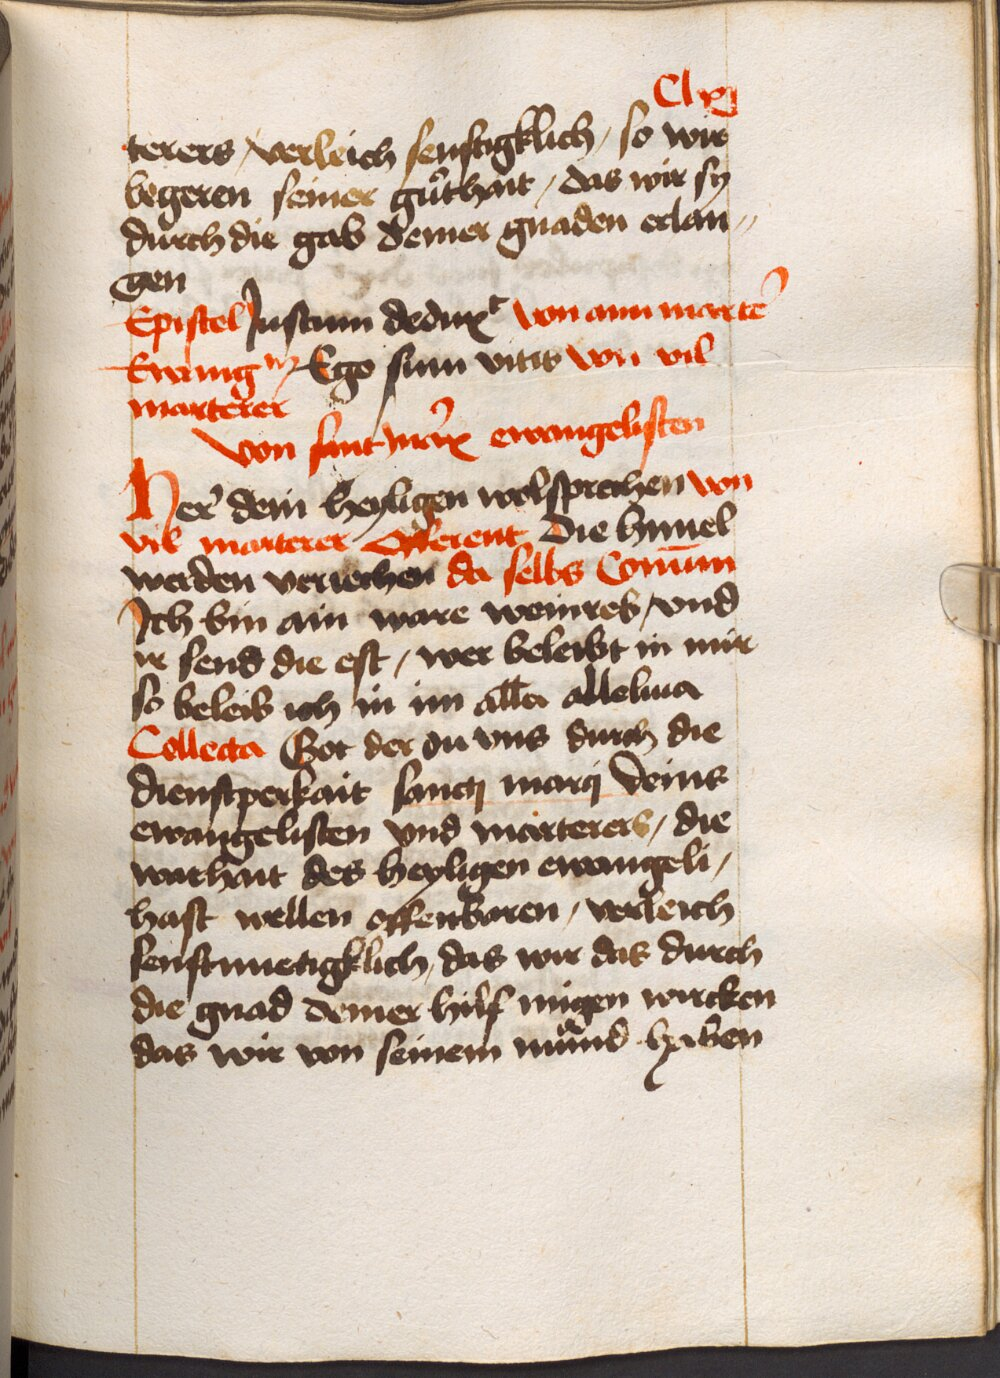 Clxj
terers / verleich senftigklich / so wir
begeren seiner gůthait / das wir sy
durch die gab deiner gnaden erlan//
gen
Epistel Justum deduxt von ainn marte᷒
Ewang Ego sum vitis von vil
marterer
von sant marx ewangelisten
Her dein heyligen wolsprechen von
vil marterer Offerent Die himel
werden veriechen da selbs Comūm
Ich bin ain ware weinreb / vnd
ir send die est / wer beleibt in mir
so beleib ich in im alla alleluia
Collecta Got der du vns durch die
dienstperkait sancti marci deins
ewangelisten vnd marterers / die
warhait des heyligen ewangeli /
hast wellen offenbaren / verleich
senftmuetigklich / das wir das durch
die gnad deiner hilf mügen wircken
das wir von seinem můnd haben